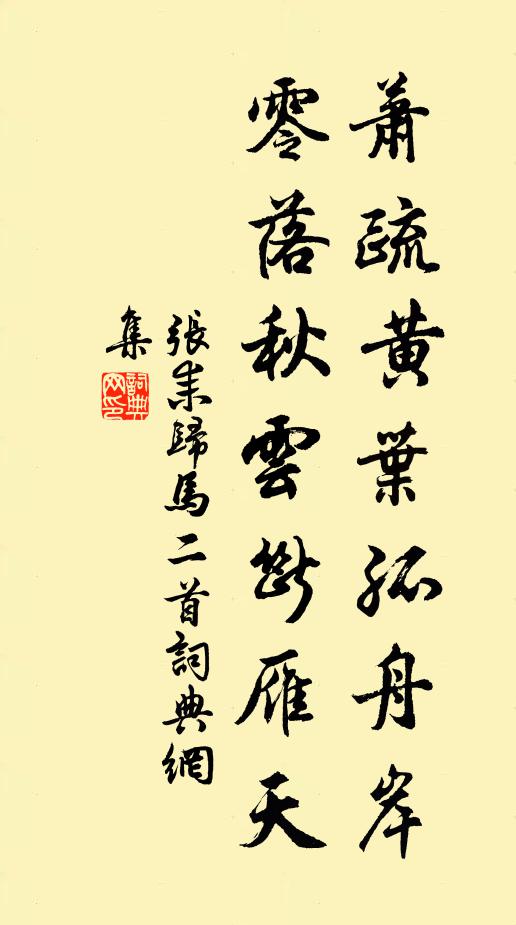 蕭疏黄葉孤舟岸
零落秋雲斷雁天
張耒歸馬二首詞典網
集
詞典
网印